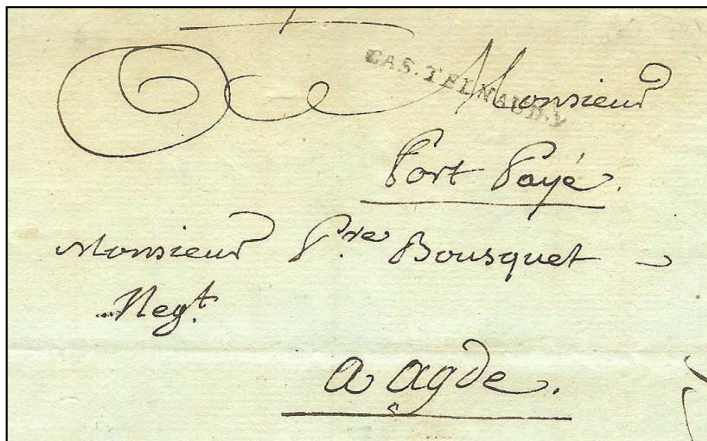 CAS.TELNAUD.Y
A Monsieur
Port Payé.
Monsieur P.re Bousquet
Neg.t
a agde.